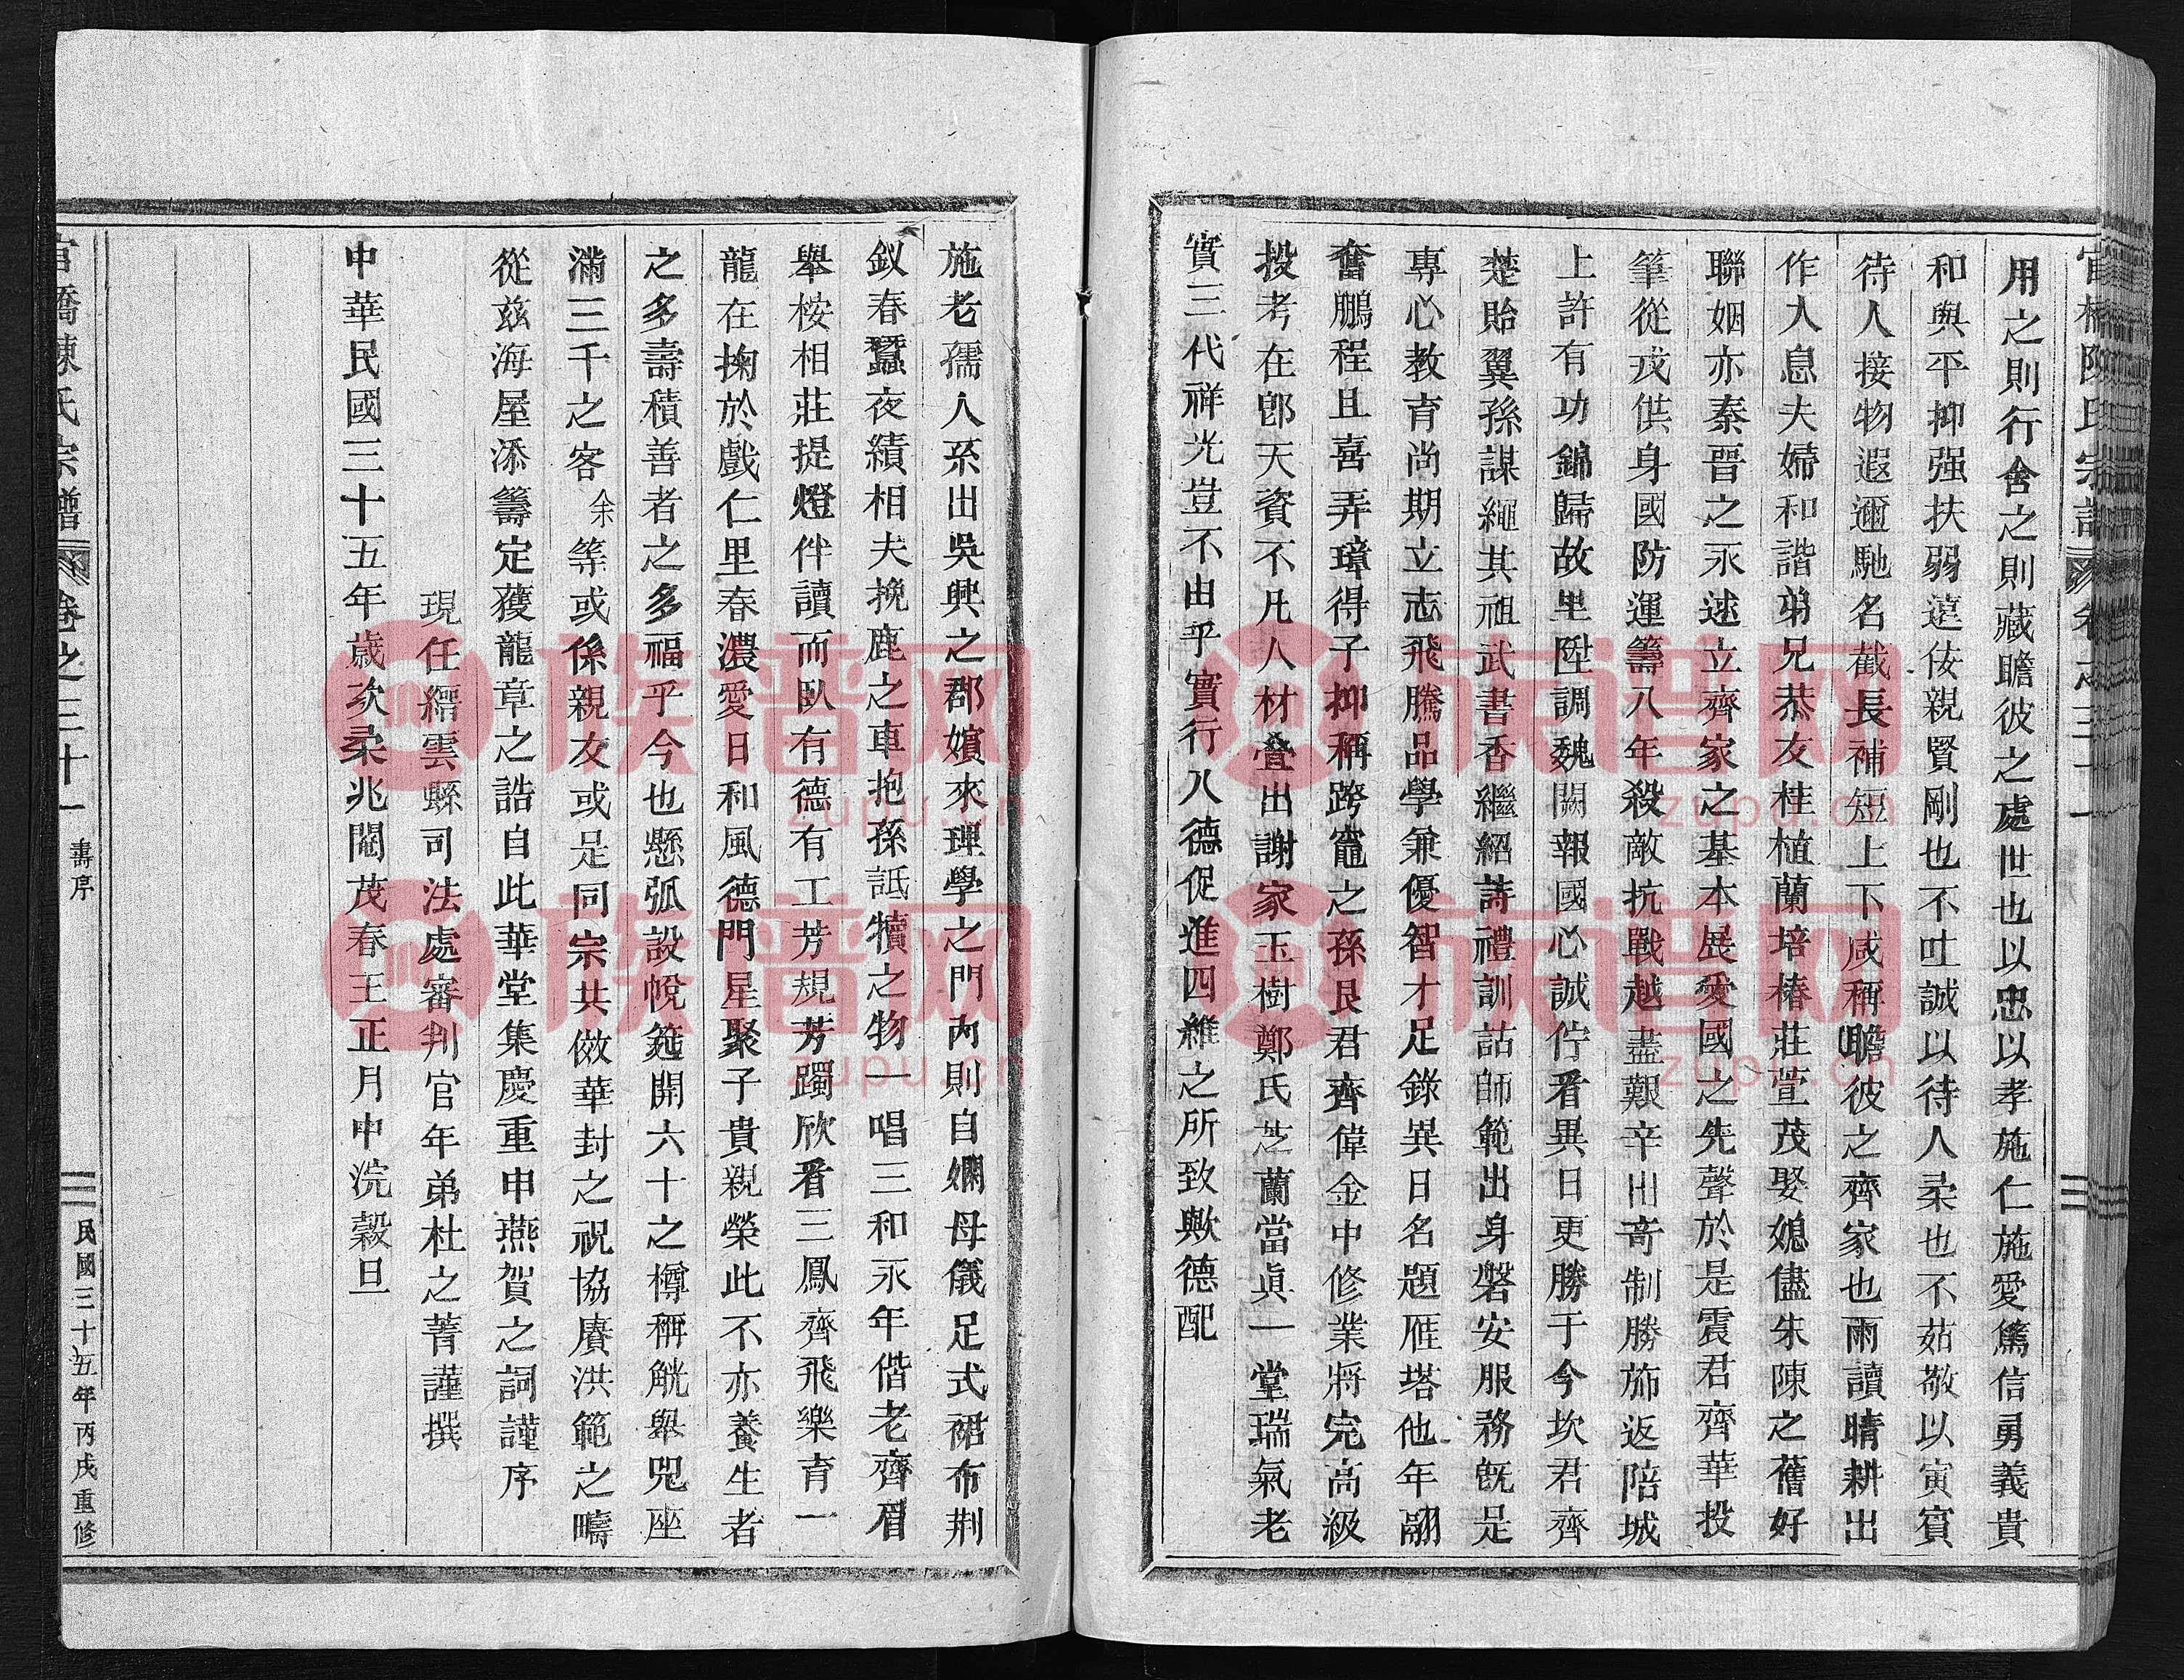 官橋陳氏宗譜 卷之三十一
用之則行舍之則藏瞻彼之處世也以忠以孝施仁施愛篤信勇義貴
和與平抑强扶弱遠佞親賢剛也不吐誠以待人柔也不茹敬以寅賓
待人接物遐邇馳名截長補短上下咸稱瞻彼之齊家也雨讀晴耕出
作入息夫婦和諧弟兄恭友桂植蘭培椿莊萱茂娶媳儘朱陳之舊好
聯姻亦秦晉之永逑立齊家之基本展愛國之先聲於是震君齊華投
筆從戎供身國防運籌八年殺敵抗戰越盡艱辛出奇制勝旆返陪城
上許有功錦歸故里陞調魏闕報國心誠佇看異日更勝于今坎君齊
楚貽翼孫謀繩其祖武書香繼紹詩禮訓詁師範出身磐安服務旣足
專心教育尚期立志飛騰品學兼優智才足錄異日名題雁塔他年翮
奮鵬程且喜弄璋得子抑稱跨竈之孫艮君齊偉金中修業將完高級
投考在卽天資不凡人材叠出謝家玉樹鄭氏芝蘭當眞一堂瑞氣老
實三代祥光豈不由乎實行八德促進四維之所致歟德配
施老孺人系出吳興之郡嬪來理學之門內則自嫻母儀足式裙布荆
釵春蠶夜績相夫挽鹿之車抱孫詆犢之物一唱三和永年偕老齊眉
舉桉相莊提燈伴讀而臥有德有工芳規芳躅欣看三鳳齊飛樂育一
龍在掬於戲仁里春濃愛日和風德門星聚子貴親榮此不亦養生者
之多壽積善者之多福乎今也懸弧設帨筵開六十之樽稱觥舉兕座
滿三千之客余等或係親友或是同宗共倣華封之祝協賡洪範之疇
從兹海屋添籌定薤龍章之誥自此華堂集慶重申燕賀之詞謹序
現任縉雲縣司法處審判官年弟杜之菁謹撰
中華民國三十五年歲次柔兆閹茂春王正月中浣穀旦
官橋陳氏宗譜 卷之三十一 壽序 民國三十五年丙戌重修
族谱网
zupu.cn
族谱网
zupu.cn
族谱网
zupu.cn
族谱网
zupu.cn